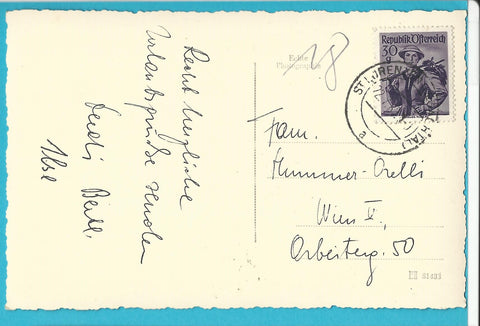 Recht herzliche
Urlaubsgrüße senden
Ilse
Echte
Photographie
18
Republik Österreich
30
ST LOREN
CHTAL)
e
Fam.
Hummer-Orelli
Wien V,
Arbeiterg. 50
51433